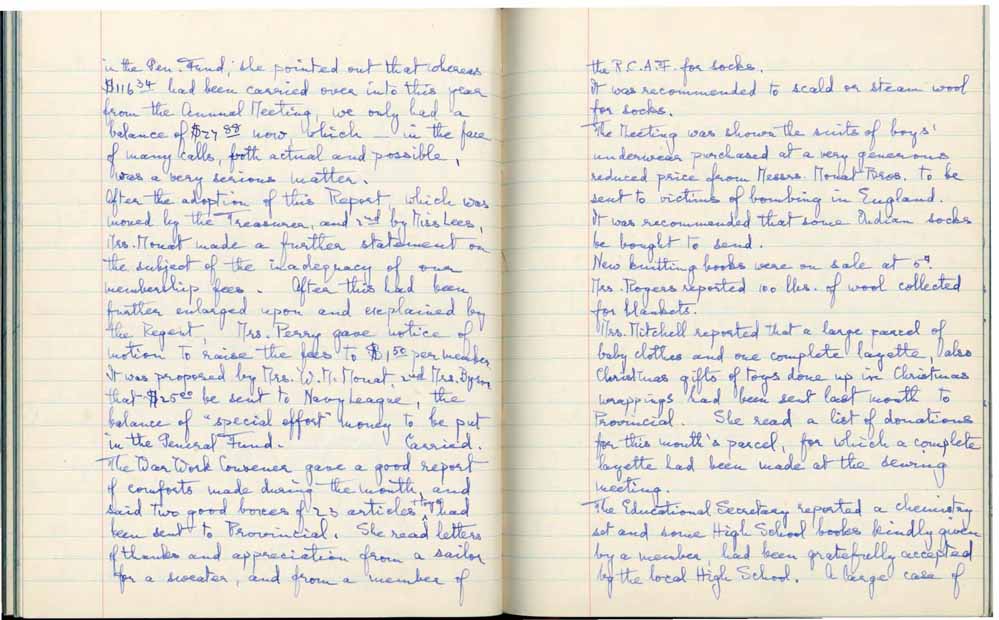 in the Gen. Fund, she pointed out that whereas
$116 34 had been carried over into this year
from the Annual Meeting, we only had a
balance of $27 88 now which — in the face
of many calls, both actual and possible,
was a very serious matter.
After the adoption of this Report, which was
moved by the Treasurer, and 2nd by Miss Lees,
Mrs. Mouat made a further statement on
the subject of the inadequacy of our
membership fees. After this had been
further enlarged upon and explained by
the Regent, Mrs. Perry gave notice of
motion to raise the fees to $1 50 per member.
It was proposed by Mrs. W. M. Mouat, 2nd Mrs.
that $25 00 be sent to Navy League, the
balance of "special effort" money to be put
in the General Fund. Carried.
The War Work Convener gave a good report
of comforts made during the month, and
said two good boxes of 23 articles + toys had
been sent to Provincial. She read letters
of thanks and appreciation from a sailor
for a sweater, and from a member of
the R.C.A.F. for socks.
It was recommended to scald or steam wool
for socks.
The Meeting was shown the suits of boys'
underwear purchased at a very generous
reduced price from Messrs. Mouat Bros. to be
sent to victims of bombing in England.
It was recommended that some Indian socks
be bought to send.
New knitting books were on sale at 5¢.
Mrs. Rogers reported 100 lbs. of wool collected
for blankets.
Mrs. Mitchell reported that a large parcel of
baby clothes and one complete layette, also
Christmas gifts of toys done up in Christmas
wrappings had been sent last month to
Provincial. She read a list of donations
for this month's parcel, for which a complete
layette had been made at the sewing
meeting.
The Educational Secretary reported a chemistry
set and some High School books kindly given
by a member, had been gratefully accepted
by the local High School. A large case of